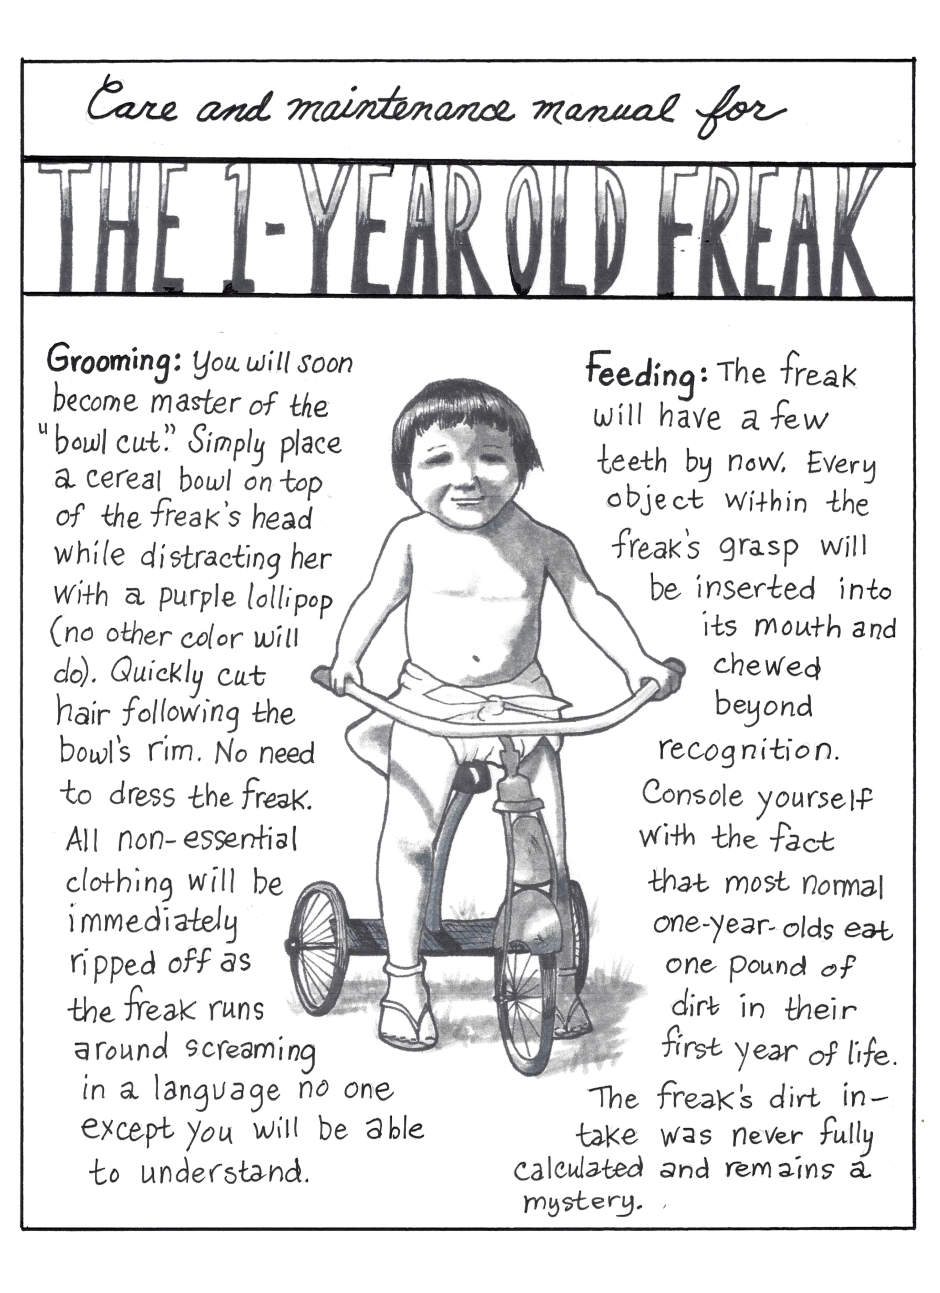 Care and maintenance manual for
THE 1-YEAR OLD FREAK
Grooming: You will soon
become master of the
"bowl cut." Simply place
a cereal bowl on top
of the freak's head
while distracting her
with a purple lollipop
(no other color will
do). Quickly cut
hair following the
bowl's rim. No need
to dress the freak.
All non-essential
clothing will be
immediately
ripped off as
the freak runs
around screaming
in a language no one
except you will be able
to understand.
Feeding: The freak
will have a few
teeth by now. Every
object within the
freak's grasp will
be inserted into
its mouth and
chewed
beyond
recognition.
Console yourself
with the fact
that most normal
one-year-olds eat
one pound of
dirt in their
first year of life.
The freak's dirt in-
take was never fully
calculated and remains a
mystery.